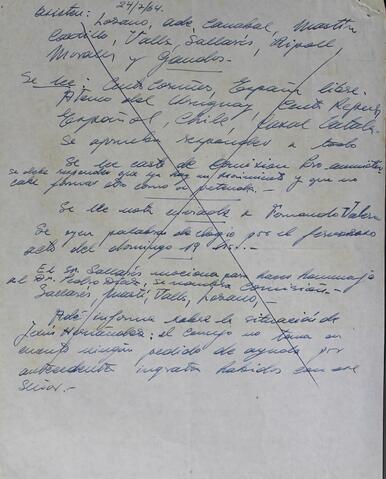 24/7/64.
Asisten: Lozano, Adé, Canabal, Martín
Castillo, Valls, Sallarés, Ripoll,
Morales y Gandos.-
Se lee: Centro Coruñés, España libre.
Ateneo del Uruguay, Centro Repub.
Español, Chile, Casal Català.
Se aprueba responder a todo
Se lee carta de Comisión Pro-amnistía
se debe responder que ya hay un movimiento y que no
cabe formar otro como se pretende.-
Se lee nota enviada a Fernando Valera
Se oyen palabras de elogio por el fervoroso
acto del domingo 19
El sr. Sallarés mociona para hacer homenaje
al Dr. Pedro Díaz. se nombra Comisión.-
Sallarés, Martí, Valls, Lozano,-
Adé informa sobre la situación de
Jesús Hernández: el Consejo no toma en
cuenta ningún pedido de ayuda por
antecedentes ingratos habidos con ese
Señor.-